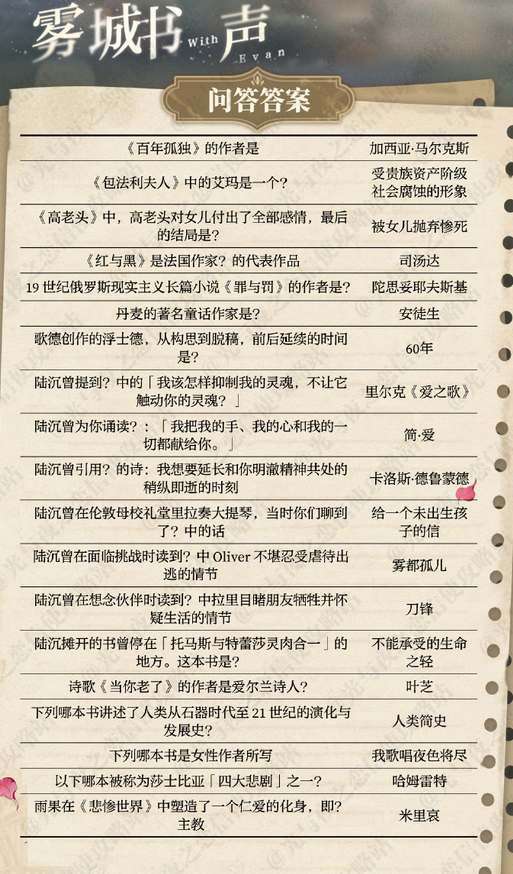 雾城书声
With
Evan
问答答案
《百年孤独》的作者是 加西亚·马尔克斯
《包法利夫人》中的艾玛是一个？ 受贵族资产阶级
社会腐蚀的形象
《高老头》中，高老头对女儿付出了全部感情，最后
的结局是？ 被女儿抛弃惨死
《红与黑》是法国作家？的代表作品 司汤达
19 世纪俄罗斯现实主义长篇小说《罪与罚》的作者是？ 陀思妥耶夫斯基
丹麦的著名童话作家是？ 安徒生
歌德创作的浮士德，从构思到脱稿，前后延续的时间
是？ 60年
陆沉曾提到？中的「我该怎样抑制我的灵魂，不让它
触动你的灵魂？」 里尔克《爱之歌》
陆沉曾为你诵读？：「我把我的手、我的心和我的一
切都献给你。」 简·爱
陆沉曾引用？的诗：我想要延长和你明澈精神共处的
稍纵即逝的时刻 卡洛斯·德鲁蒙德
陆沉曾在伦敦母校礼堂里拉奏大提琴，当时你们聊到
了？中的话 给一个未出生孩
子的信
陆沉曾在面临挑战时读到？中 Oliver 不堪忍受虐待出
逃的情节 雾都孤儿
陆沉曾在想念伙伴时读到？中拉里目睹朋友牺牲并怀
疑生活的情节 刀锋
陆沉摊开的书曾停在「托马斯与特蕾莎灵肉合一」的
地方。这本书是？ 不能承受的生命
之轻
诗歌《当你老了》的作者是爱尔兰诗人？ 叶芝
下列哪本书讲述了人类从石器时代至 21 世纪的演化与
发展史？ 人类简史
下列哪本书是女性作者所写 我歌唱夜色将尽
以下哪本被称为莎士比亚「四大悲剧」之一？ 哈姆雷特
雨果在《悲惨世界》中塑造了一个仁爱的化身，即？
主教 米里哀